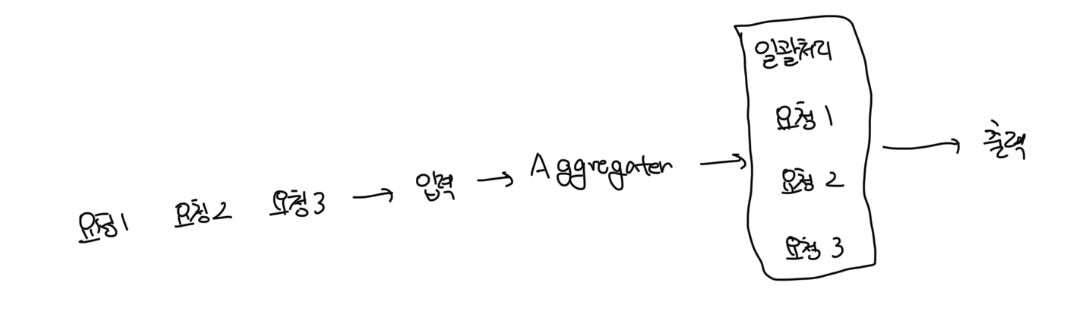 요청1 요청2 요청3 → 입력 → Aggregater →
일괄처리
요청 1
요청 2
요청 3
→ 출력